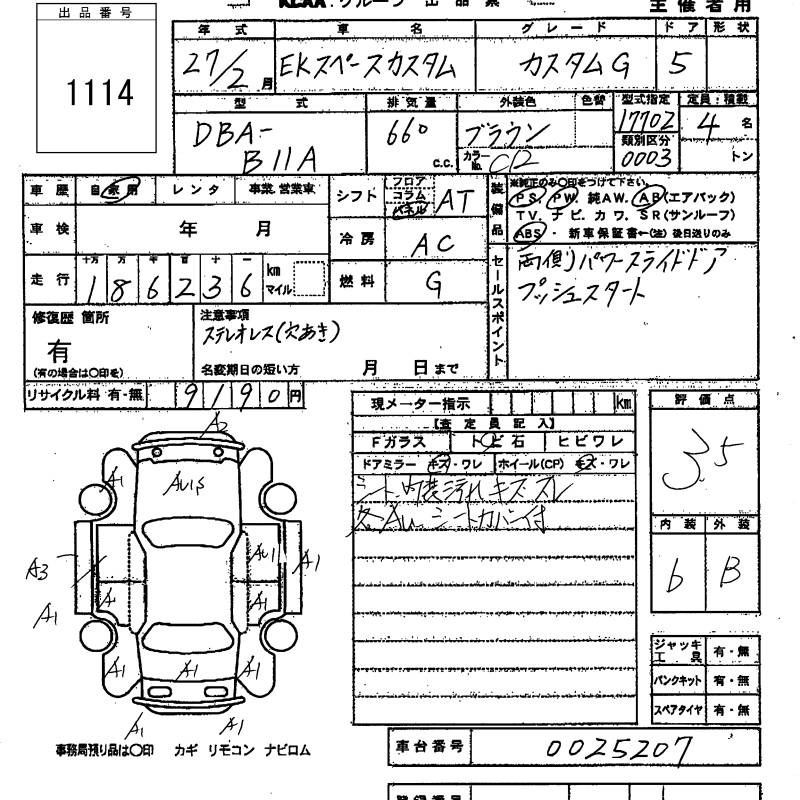 KCAA グループ 出品票
主催者用
出品番号
1114
年式 車名 グレード ドア 形状
27/2月 EKスペースカスタム カスタムG 5
型式 排気量 外装色 色替 型式指定 定員・積載
DBA-B11A 660 c.c. ブラウン 17702 4名
カラーNo. C12 類別区分 0003 トン
車歴 自家用 レンタ 事業、営業車
車検 年 月
走行 十万 万 千 百 十 一 km マイル
186236
シフト フロア コラム パネル AT
冷房 AC
燃料 G
装備品 ※純正のみ○印をつけて下さい。
PS. PW. 純AW. AB(エアバック)
TV. ナビ. カワ. SR(サンルーフ)
ABS・新車保証書←(注) 後日送りのみ
セールスポイント
両側パワースライドドア
プッシュスタート
修復歴 箇所
有
(有の場合は○印を)
注意事項
ステレオレス(穴あき)
名変期日の短い方 月 日まで
リサイクル料 有・無 9190円
現メーター指示 km
【査定員記入】
Fガラス トビ石 ヒビワレ
ドアミラー キズ・ワレ ホイール(CP) キズ・ワレ
シート、内装汚れ キズ スレ
シートカバー付
評価点
3.5
内装 外装
b B
A2
A1 AU1S
AU1 A1
A3 A1 A1
A1
A1 A1 A1
A1 A1
ジャッキ工具 有・無
パンクキット 有・無
スペアタイヤ 有・無
事務局預り品は○印 カギ リモコン ナビロム
車台番号 0025207
登録番号